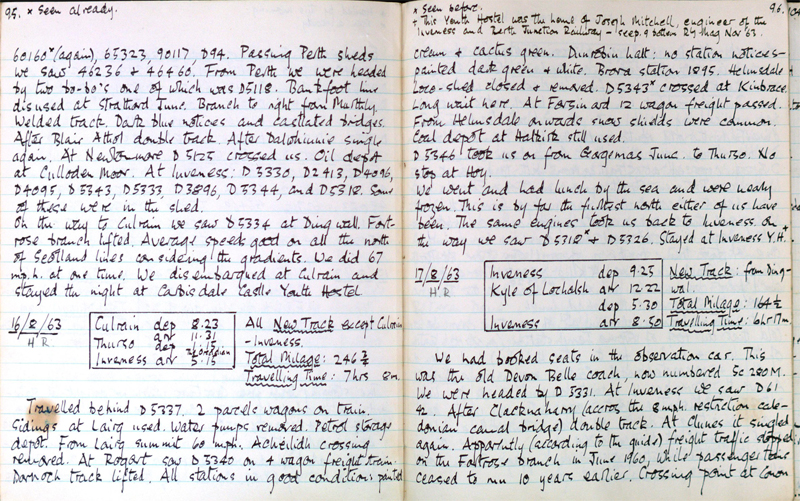 95. × Seen already.
60160ˣ (again), 65323, 90117, D94. Passing Perth sheds
we saw 46236 & 46460. From Perth we were headed
by two bo-bo's one of which was D5118. Bankfoot line
disused at Strathord Junc. Branch to right from Murthly.
Welded track. Dark blue notices and castlated bridges.
After Blair Atholl double track. After Dalwhinnie single
again. At Newtonmore D5125 crossed us. Oil depot
at Culloden Moor. At Inverness: D5330, D2413, D4096,
D4095, D5343, D5333, D3896, D5344, and D5318. Some
of these were in the shed.
On the way to Culrain we saw D5334 at Dingwall. Fort-
rose branch lifted. Average speeds good on all the north
of Scotland lines considering the gradients. We did 67
m.p.h. at one time. We disembarqued at Culrain and
stayed the night at Carbisdale Castle Youth Hostel
16/8/63
H R
Culrain dep 8.23
Thurso arr 11.31
dep 1.15
Inverness arr 5.15
All New Track except Culrain
- Inverness.
Total Milage: 246¾
Travelling Time: 7hrs 8m.
Travelled behind D5337. 2 parcels wagons on train.
Sidings at Lairg used. Water pumps removed. Petrol storage
depot. From Lairg summit 60 mph. Achentlich crossing
removed. At Rogart saw D5340 on 4 wagon freight train.
Dornoch track lifted. All stations in good condition: painted
96.
× Seen before.
+ This Youth Hostel was the home of Joseph Mitchell, engineer of the
Inverness and Perth Junction Railway - Rly Mag Nov 63.
cream & cactus green. Dunrobin halt: no station notices-
painted dark green & white. Brora station 1895. Helmsdale
loco-shed closed & removed. D5343ˣ crossed at Kinbrace.
Long wait here. At Forsinard 12 wagon freight passed.
From Helmsdale onwards snow shields were common.
Coal depot at Halkirk still used.
D5346 took us on from Georgemas Junc. to Thurso. No
stop at Hoy.
We went and had lunch by the sea and were nearly
frozen. This is by far the furthest north either of us have
been. The same engines took us back to Inverness. On
the way we saw D5318ˣ & D5326. Stayed at Inverness Y.H.+
17/8/63
H R
Inverness dep 9.25
Kyle of Lochalsh arr 12.22
dep 5.30
Inverness arr 8.50
New Track: from Ding-
wal.
Total Milage: 164½
Travelling Time: 6hr 17m.
We had booked seats in the observation car. This
was the old Devon Belle coach, now numbered Sc 280 M.
We were headed by D5331. At Inverness we saw D61
92. After Clachnaharry (accros the 8 mph. restriction cale-
donian canal bridge) double track. At Clunes it singled
again. Apparently (according to the guide) freight traffic stopped
on the Fortrose branch in June 1960, while passenger trains
ceased to run 10 years earlier. Crossing point at Conon